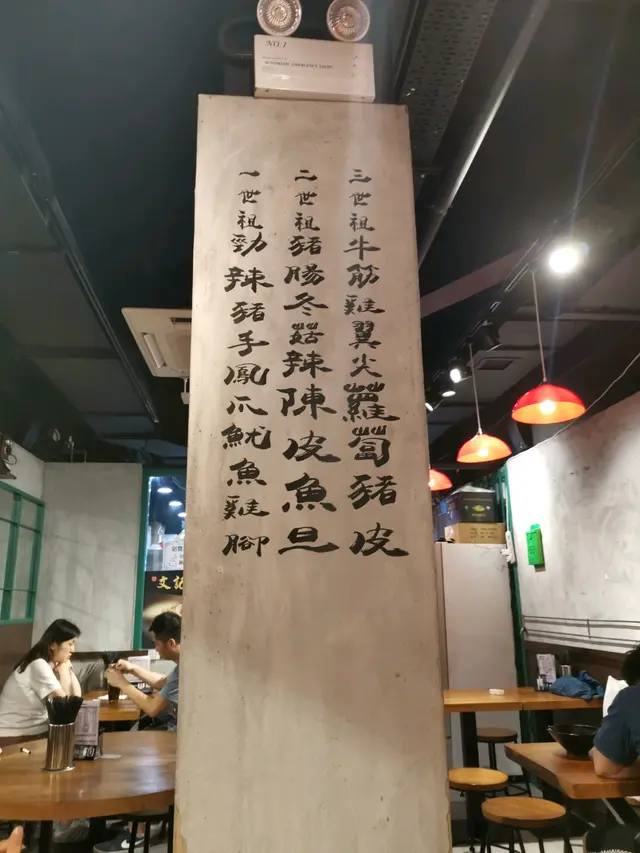 NO. 1
AUTOMATIC EMERGENCY LIGHT
一世祖勁辣豬手鳳爪魷魚雞腳
二世祖豬腸冬菇辣陳皮魚旦
三世祖牛筋雞翼尖蘿蔔豬皮
文記